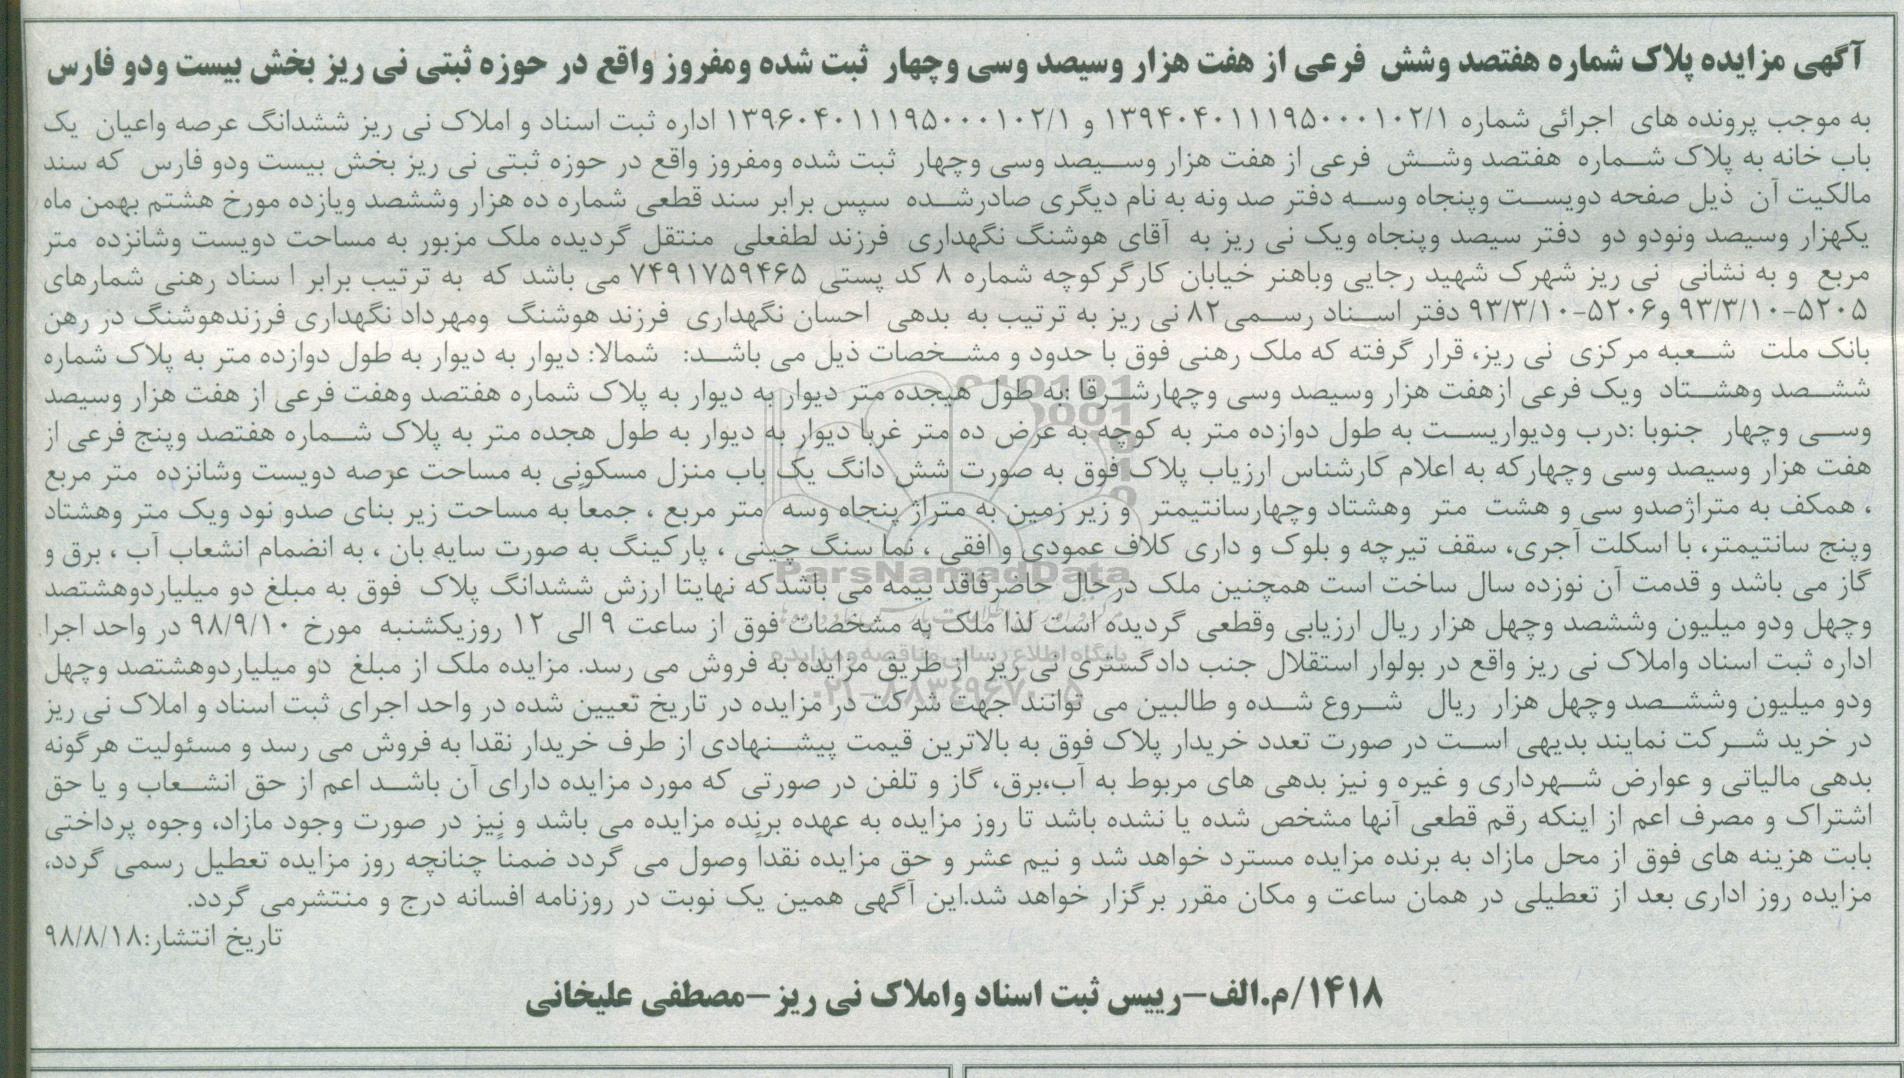 آگهی مزایده پلاک شماره هفتصد وشش فرعی از هفت هزار وسیصد وسی وچهار ثبت شده ومفروز واقع در حوزه ثبتی نی ریز بخش بیست ودو فارس
به موجب پرونده های اجرائی شماره ۱۳۹۴۰۴۰۱۱۱۹۵۰۰۰۱۰۲/۱ و ۱۳۹۶۰۴۰۱۱۱۹۵۰۰۰۱۰۲/۱ اداره ثبت اسناد و املاک نی ریز ششدانگ عرصه واعیان یک
باب خانه به پلاک شماره هفتصد وشش فرعی از هفت هزار وسیصد وسی وچهار ثبت شده ومفروز واقع در حوزه ثبتی نی ریز بخش بیست ودو فارس که سند
مالکیت آن ذیل صفحه دویست وپنجاه وسه دفتر صد ونه به نام دیگری صادرشده سپس برابر سند قطعی شماره ده هزار وششصد ویازده مورخ هشتم بهمن ماه
یکهزار وسیصد ونودو دو دفتر سیصد وپنجاه ویک نی ریز به آقای هوشنگ نگهداری فرزند لطفعلی منتقل گردیده ملک مزبور به مساحت دویست وشانزده متر
مربع و به نشانی نی ریز شهرک شهید رجایی وباهنر خیابان کارگرکوچه شماره ۸ کد پستی ۷۴۹۱۷۵۹۴۶۵ می باشد که به ترتیب برابر ا سناد رهنی شمارهای
۵۲۰۵-۹۳/۳/۱۰ و۵۲۰۶-۹۳/۳/۱۰ دفتر اسناد رسمی۸۲ نی ریز به ترتیب به بدهی احسان نگهداری فرزند هوشنگ ومهرداد نگهداری فرزندهوشنگ در رهن
بانک ملت شعبه مرکزی نی ریز، قرار گرفته که ملک رهنی فوق با حدود و مشخصات ذیل می باشد: شمالا: دیوار به دیوار به طول دوازده متر به پلاک شماره
ششصد وهشتاد ویک فرعی ازهفت هزار وسیصد وسی وچهارشرقا :به طول هیجده متر دیوار به دیوار به پلاک شماره هفتصد وهفت فرعی از هفت هزار وسیصد
وسی وچهار جنوبا :درب ودیواریست به طول دوازده متر به کوچه به عرض ده متر غربا دیوار به دیوار به طول هجده متر به پلاک شماره هفتصد وپنج فرعی از
هفت هزار وسیصد وسی وچهارکه به اعلام کارشناس ارزیاب پلاک فوق به صورت شش دانگ یک باب منزل مسکونی به مساحت عرصه دویست وشانزده متر مربع
، همکف به متراژصدو سی و هشت متر وهشتاد وچهارسانتیمتر و زیر زمین به متراژ پنجاه وسه متر مربع ، جمعاً به مساحت زیر بنای صدو نود ویک متر وهشتاد
وپنج سانتیمتر، با اسکلت آجری، سقف تیرچه و بلوک و داری کلاف عمودی و افقی ، نما سنگ چینی ، پارکینگ به صورت سایه بان ، به انضمام انشعاب آب ، برق و
گاز می باشد و قدمت آن نوزده سال ساخت است همچنین ملک درحال حاضرفاقد بیمه می باشدکه نهایتا ارزش ششدانگ پلاک فوق به مبلغ دو میلیاردوهشتصد
وچهل ودو میلیون وششصد وچهل هزار ریال ارزیابی وقطعی گردیده است لذا ملک به مشخصات فوق از ساعت ۹ الی ۱۲ روزیکشنبه مورخ ۹۸/۹/۱۰ در واحد اجرا
اداره ثبت اسناد واملاک نی ریز واقع در بولوار استقلال جنب دادگستری نی ریز از طریق مزایده به فروش می رسد. مزایده ملک از مبلغ دو میلیاردوهشتصد وچهل
ودو میلیون وششصد وچهل هزار ریال شروع شده و طالبین می توانند جهت شرکت در مزایده در تاریخ تعیین شده در واحد اجرای ثبت اسناد و املاک نی ریز
در خرید شرکت نمایند بدیهی است در صورت تعدد خریدار پلاک فوق به بالاترین قیمت پیشنهادی از طرف خریدار نقدا به فروش می رسد و مسئولیت هرگونه
بدهی مالیاتی و عوارض شهرداری و غیره و نیز بدهی های مربوط به آب،برق، گاز و تلفن در صورتی که مورد مزایده دارای آن باشد اعم از حق انشعاب و یا حق
اشتراک و مصرف اعم از اینکه رقم قطعی آنها مشخص شده یا نشده باشد تا روز مزایده به عهده برنده مزایده می باشد و نیز در صورت وجود مازاد، وجوه پرداختی
بابت هزینه های فوق از محل مازاد به برنده مزایده مسترد خواهد شد و نیم عشر و حق مزایده نقداً وصول می گردد ضمناً چنانچه روز مزایده تعطیل رسمی گردد،
مزایده روز اداری بعد از تعطیلی در همان ساعت و مکان مقرر برگزار خواهد شد.این آگهی همین یک نوبت در روزنامه افسانه درج و منتشرمی گردد.
تاریخ انتشار:۹۸/۸/۱۸
۱۴۱۸/م.الف-رییس ثبت اسناد واملاک نی ریز-مصطفی علیخانی
ParsNamadData
پایگاه اطلاع رسانی مناقصه و مزایده
۰۲۱-۸۸۳۴۹۶۷۰-۵